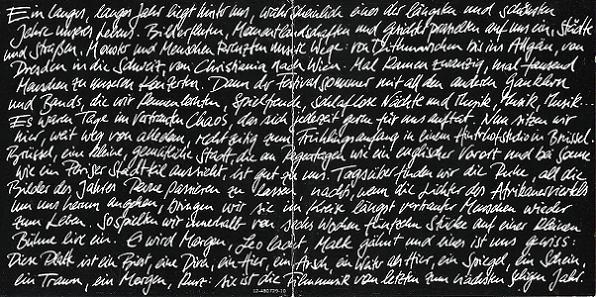 Ein langes, langes Jahr liegt hinter uns, wahrscheinlich eines der längsten und schönsten
Jahre unseres Lebens. Bilderfluten, Momentlandschaften und Gesichter prasselten auf uns ein, Städte
und Straßen, Monster und Menschen kreuzten unsere Wege: von Dithmarschen bis ins Allgäu, von
Dresden in die Schweiz, von Christiania nach Wien. Mal kamen zwanzig, mal tausend
Menschen zu unseren Konzerten. Dann der Festivalsommer mit all den anderen Gauklern
und Bands, die wir kennenlernten, Spielfreude, schlaflose Nächte und Musik, Musik, Musik...
Es waren Tage im vertrauten Chaos, das sich jederzeit gern für uns auftat. Nun sitzen wir
hier, weit weg von alledem, rechtzeitig zum Frühlingsanfang in einem Hinterhofstudio in Brüssel.
Brüssel, eine kleine, gemütliche Stadt, die an Regentagen wie ein englischer Vorort und bei Sonne
wie ein Pariser Stadtteil aussieht, ist gut zu uns. Tagsüber finden wir die Ruhe, all die
Bilder des Jahres Revue passieren zu lassen, nachts, wenn die Lichter des Afrikanerviertels
um uns herum angehen, bringen wir sie im Kreise längst vertrauter Menschen wieder
zum Leben. So spielten wir innerhalb von sechs Wochen fünfzehn Stücke auf einer kleinen
Bühne live ein. Es wird Morgen, Leo lacht, Malk gähnt und eines ist uns gewiss:
Diese Platte ist ein Biest, eine Diva, ein Tier, ein Arsch, ein Wüster als Tier, ein Spiegel, ein Schein,
ein Traum, ein Morgen. Kurz: sie ist die Filmmusik vom letzten zum nächsten gelben Jahr.
12-480729-10